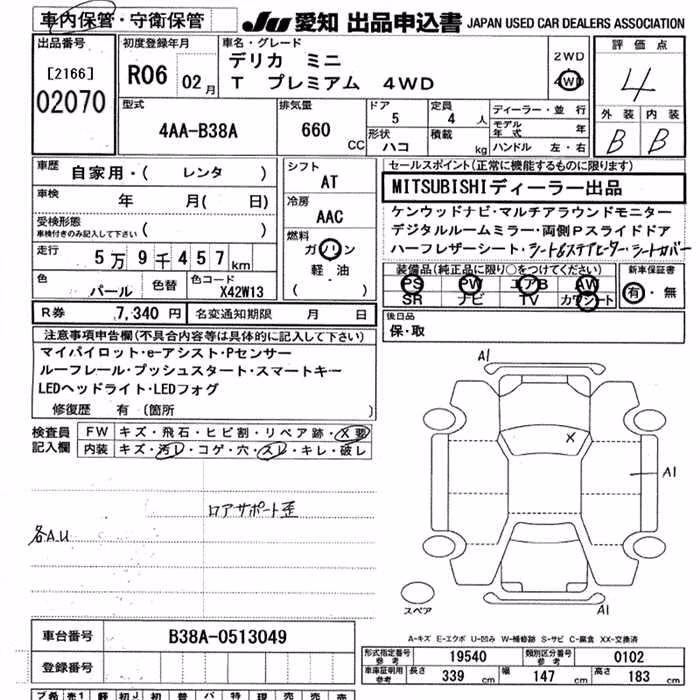 車内保管・守衛保管
JU 愛知 出品申込書 JAPAN USED CAR DEALERS ASSOCIATION
出品番号
[2166]
02070
初度登録年月
R06 02月
車名・グレード
デリカ ミニ
T プレミアム 4WD
2WD
4WD
評価点
4
外装 内装
B B
型式
4AA-B38A
排気量
660 CC
ドア
5
定員
4 人
形状
ハコ
積載
kg
ディーラー・並行
モデル年式 年
ハンドル 左・右
車歴 自家用・( レンタ )
車検 年 月( 日)
受検形態
車検付きのみ記入して下さい ( )
走行 5万9千457km
色 パール
色替
色コード X42W13
シフト
AT
冷房
AAC
燃料
ガソリン
軽・油
( )
セールスポイント(正常に機能するものに限ります)
MITSUBISHIディーラー出品
ケンウッドナビ・マルチアラウンドモニター
デジタルルームミラー・両側Pスライドドア
ハーフレザーシート・シート&ステアヒーター・シートカバー
装備品(純正品に限り○をつけてください)
PS PW エアB AW
SR ナビ TV カワシート
新車保証書
有・無
R券 7,340円 名変通知期限 月 日
後日品
保・取
注意事項申告欄(不具合内容等は具体的に記入して下さい)
マイパイロット・e-アシスト・Pセンサー
ルーフレール・プッシュスタート・スマートキー
LEDヘッドライト・LEDフォグ
修復歴 有 (箇所 )
検査員記入欄
FW キズ・飛石・ヒビ割・リペア跡・X要
内装 キズ・汚レ・コゲ・穴・スレ・キレ・破レ
ロアサポート歪
各A.U
A1
X
A1
A1
スペア
A-キズ E-エクボ U-凹み W-補修跡 S-サビ C-腐食 XX-交換済
車台番号 B38A-0513049
登録番号
形式指定番号 参考 19540 類別区分番号 参考 0102
車庫証明用 参考 長さ 339 cm 幅 147 cm 高さ 183 cm